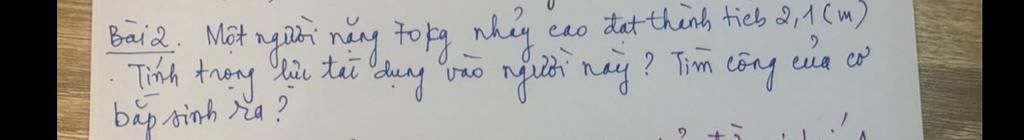 Bài 2. Một người nặng 70kg nhảy cao đạt thành tích 2,1 (m)
. Tính trọng lực tác dụng vào người này? Tìm công của cơ
bắp sinh ra?